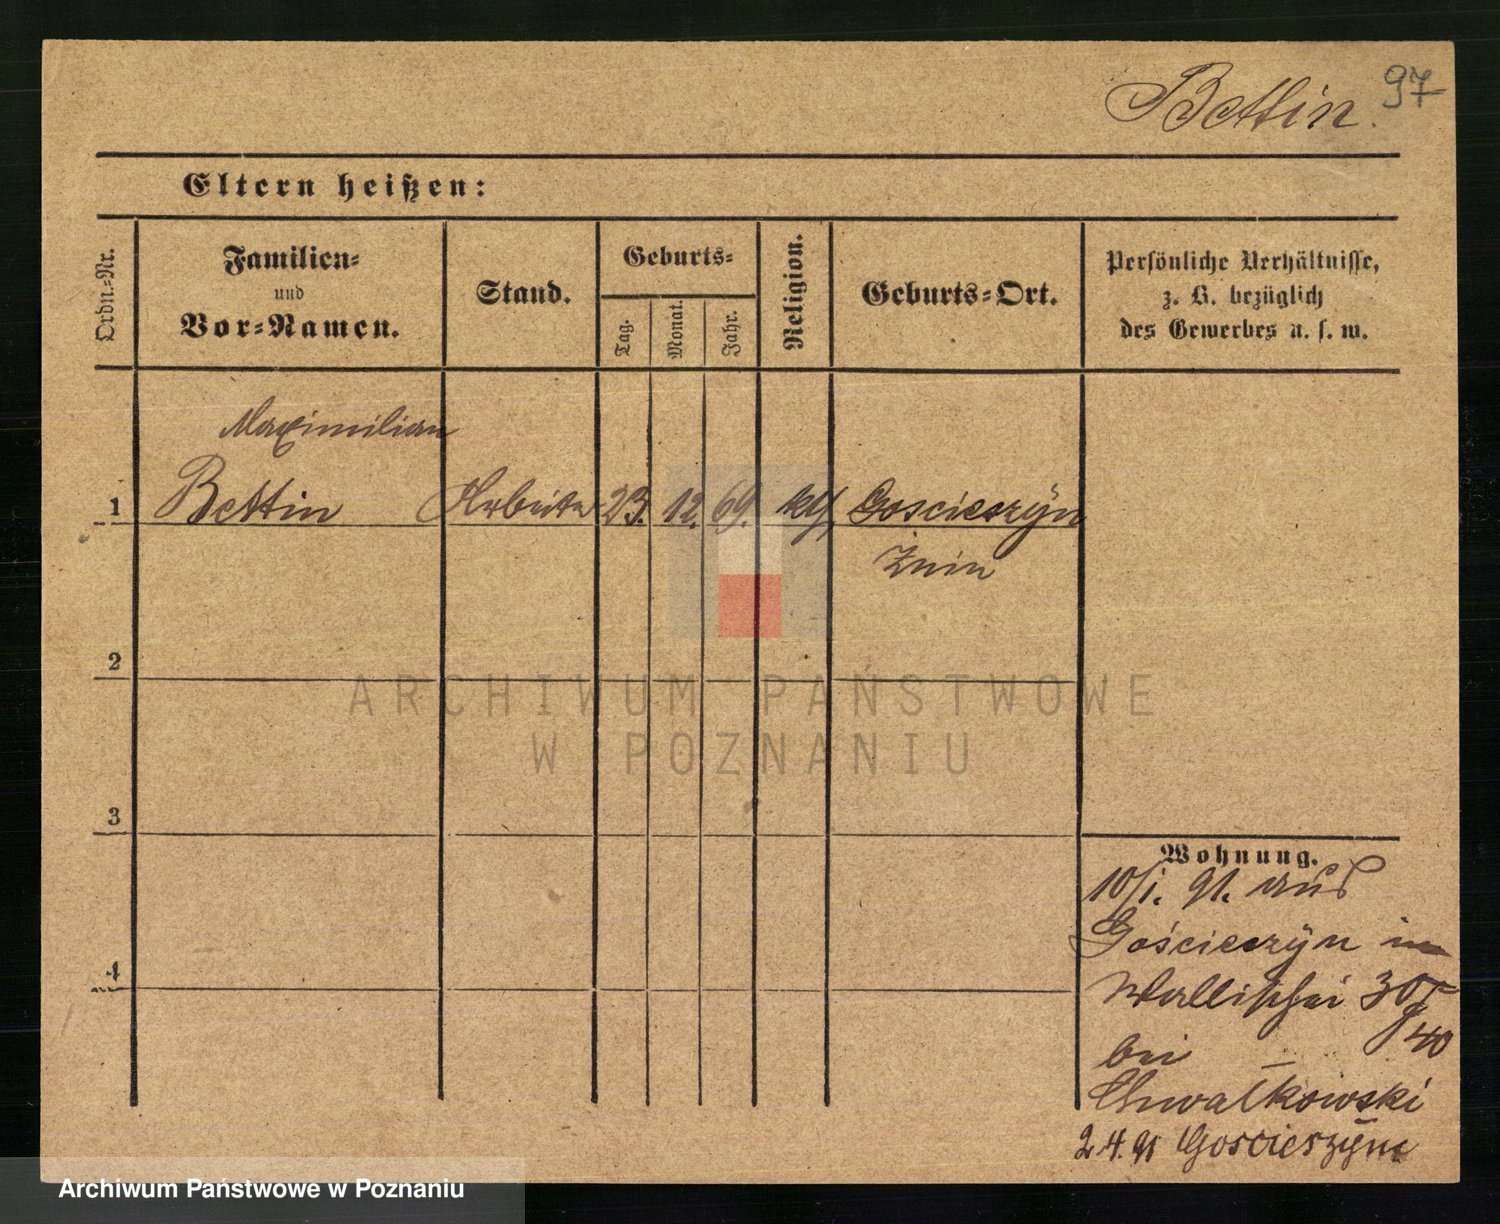 Bettin. 97
Eltern heißen:
Ordn.-Nr.
Familien-
und
Vor-Namen.
Stand.
Geburts-
Tag.
Monat.
Jahr.
Religion.
Geburts-Ort.
Persönliche Verhältnisse,
z. B. bezüglich
des Gewerbes u. s. w.
Maximilian
1 Bettin Arbeiter 23. 12. 69. kth. Goscieszyn
Znin
2
ARCHIWUM PAŃSTWOWE
W POZNANIU
3
Wohnung.
10/1. 91. aus
Gościeszyn in
4
Wallischei 39/40
bei
Chwałkowski
2.4.91 Goscieszyn
Archiwum Państwowe w Poznaniu